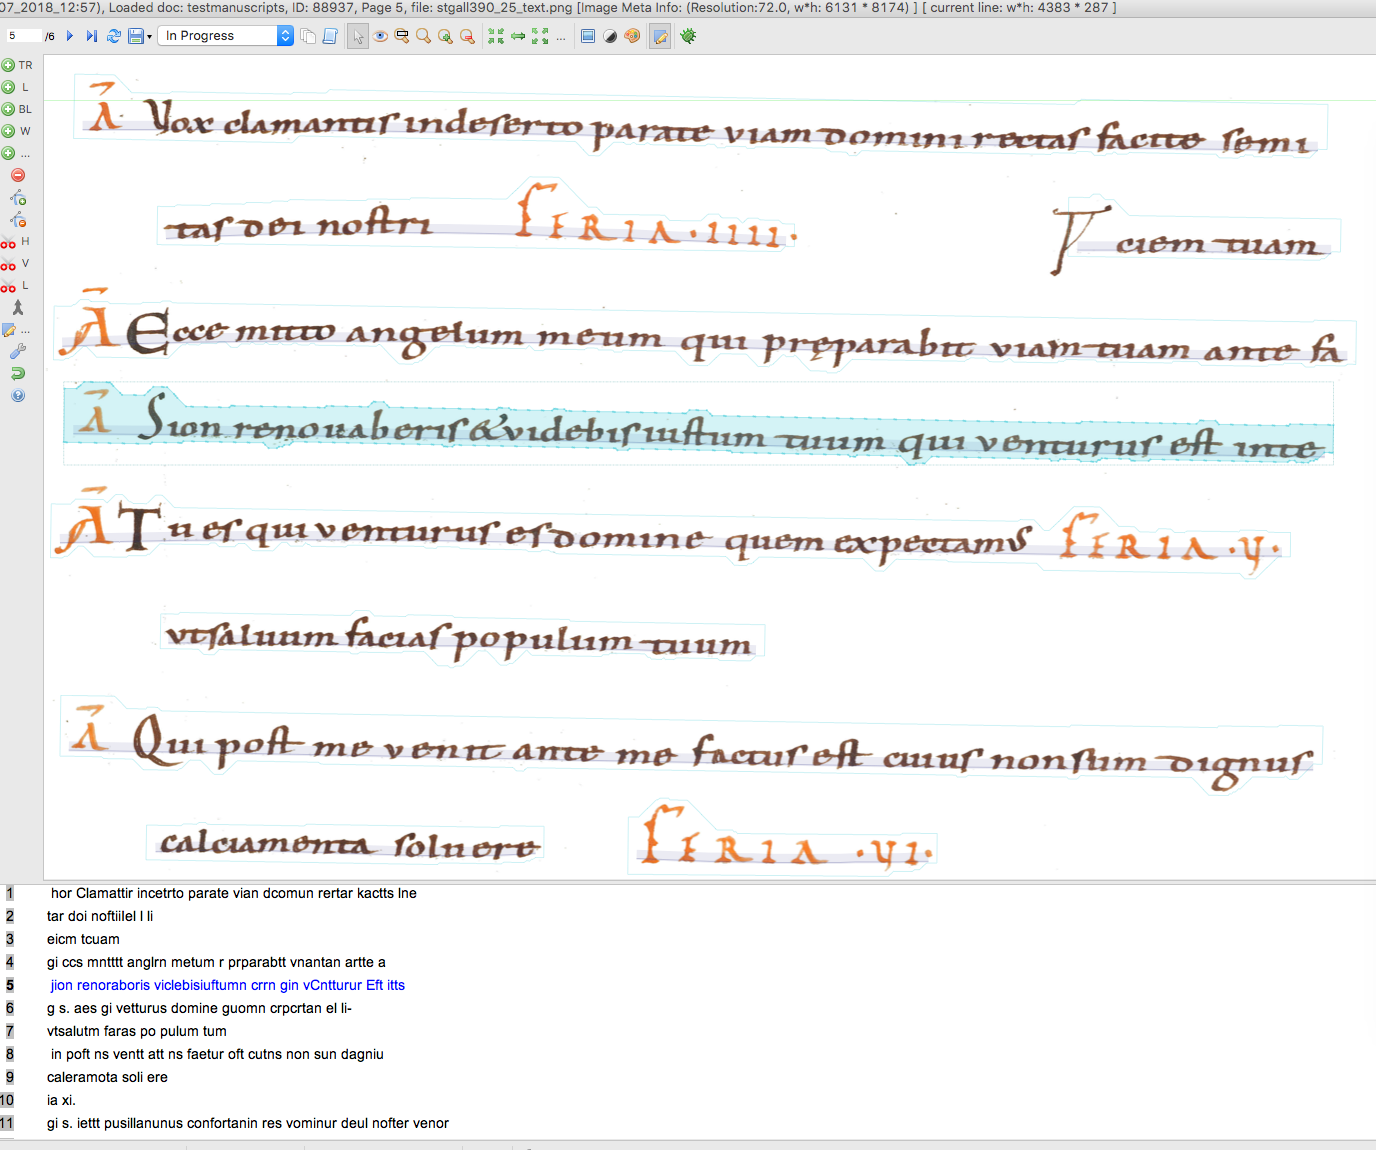 07_2018_12:57), Loaded doc: testmanuscripts, ID: 88937, Page 5, file: stgall390_25_text.png [Image Meta Info: (Resolution:72.0, w*h: 6131 * 8174) ] [ current line: w*h: 4383 * 287 ]
5 /6 In Progress ...
TR
L
BL
W
...
H
V
L
...
Ā. Vox clamantis indeserto parate viam domini rectas facite semi
tas dei nostri FERIA · IIII · V ciem tuam
Ā Ecce mitto angelum meum qui pręparabit viam tuam ante fa
Ā Sion renouaberis & videbis iustum tuum qui venturus est inte
Ā Tu es qui venturus es domine quem expectamus FERIA · V ·
vt saluum facias populum tuum
Ā Qui post me venit ante me factus est cuius non sum dignus
calciamenta soluere FERIA · VI ·
1 hor Clamattir incetrto parate vian dcomun rertar kactts lne
2 tar doi noftiilel l li
3 eicm tcuam
4 gi ccs mntttt anglrn metum r prparabtt vnantan artte a
5 jion renoraboris viclebisiuftumn crrn gin vCntturur Eft itts
6 g s. aes gi vetturus domine guomn crpcrtan el li-
7 vtsalutm faras po pulum tum
8 in poft ns ventt att ns faetur oft cutns non sun dagniu
9 caleramota soli ere
10 ia xi.
11 gi s. iettt pusillanunus confortanin res vominur deul nofter venor